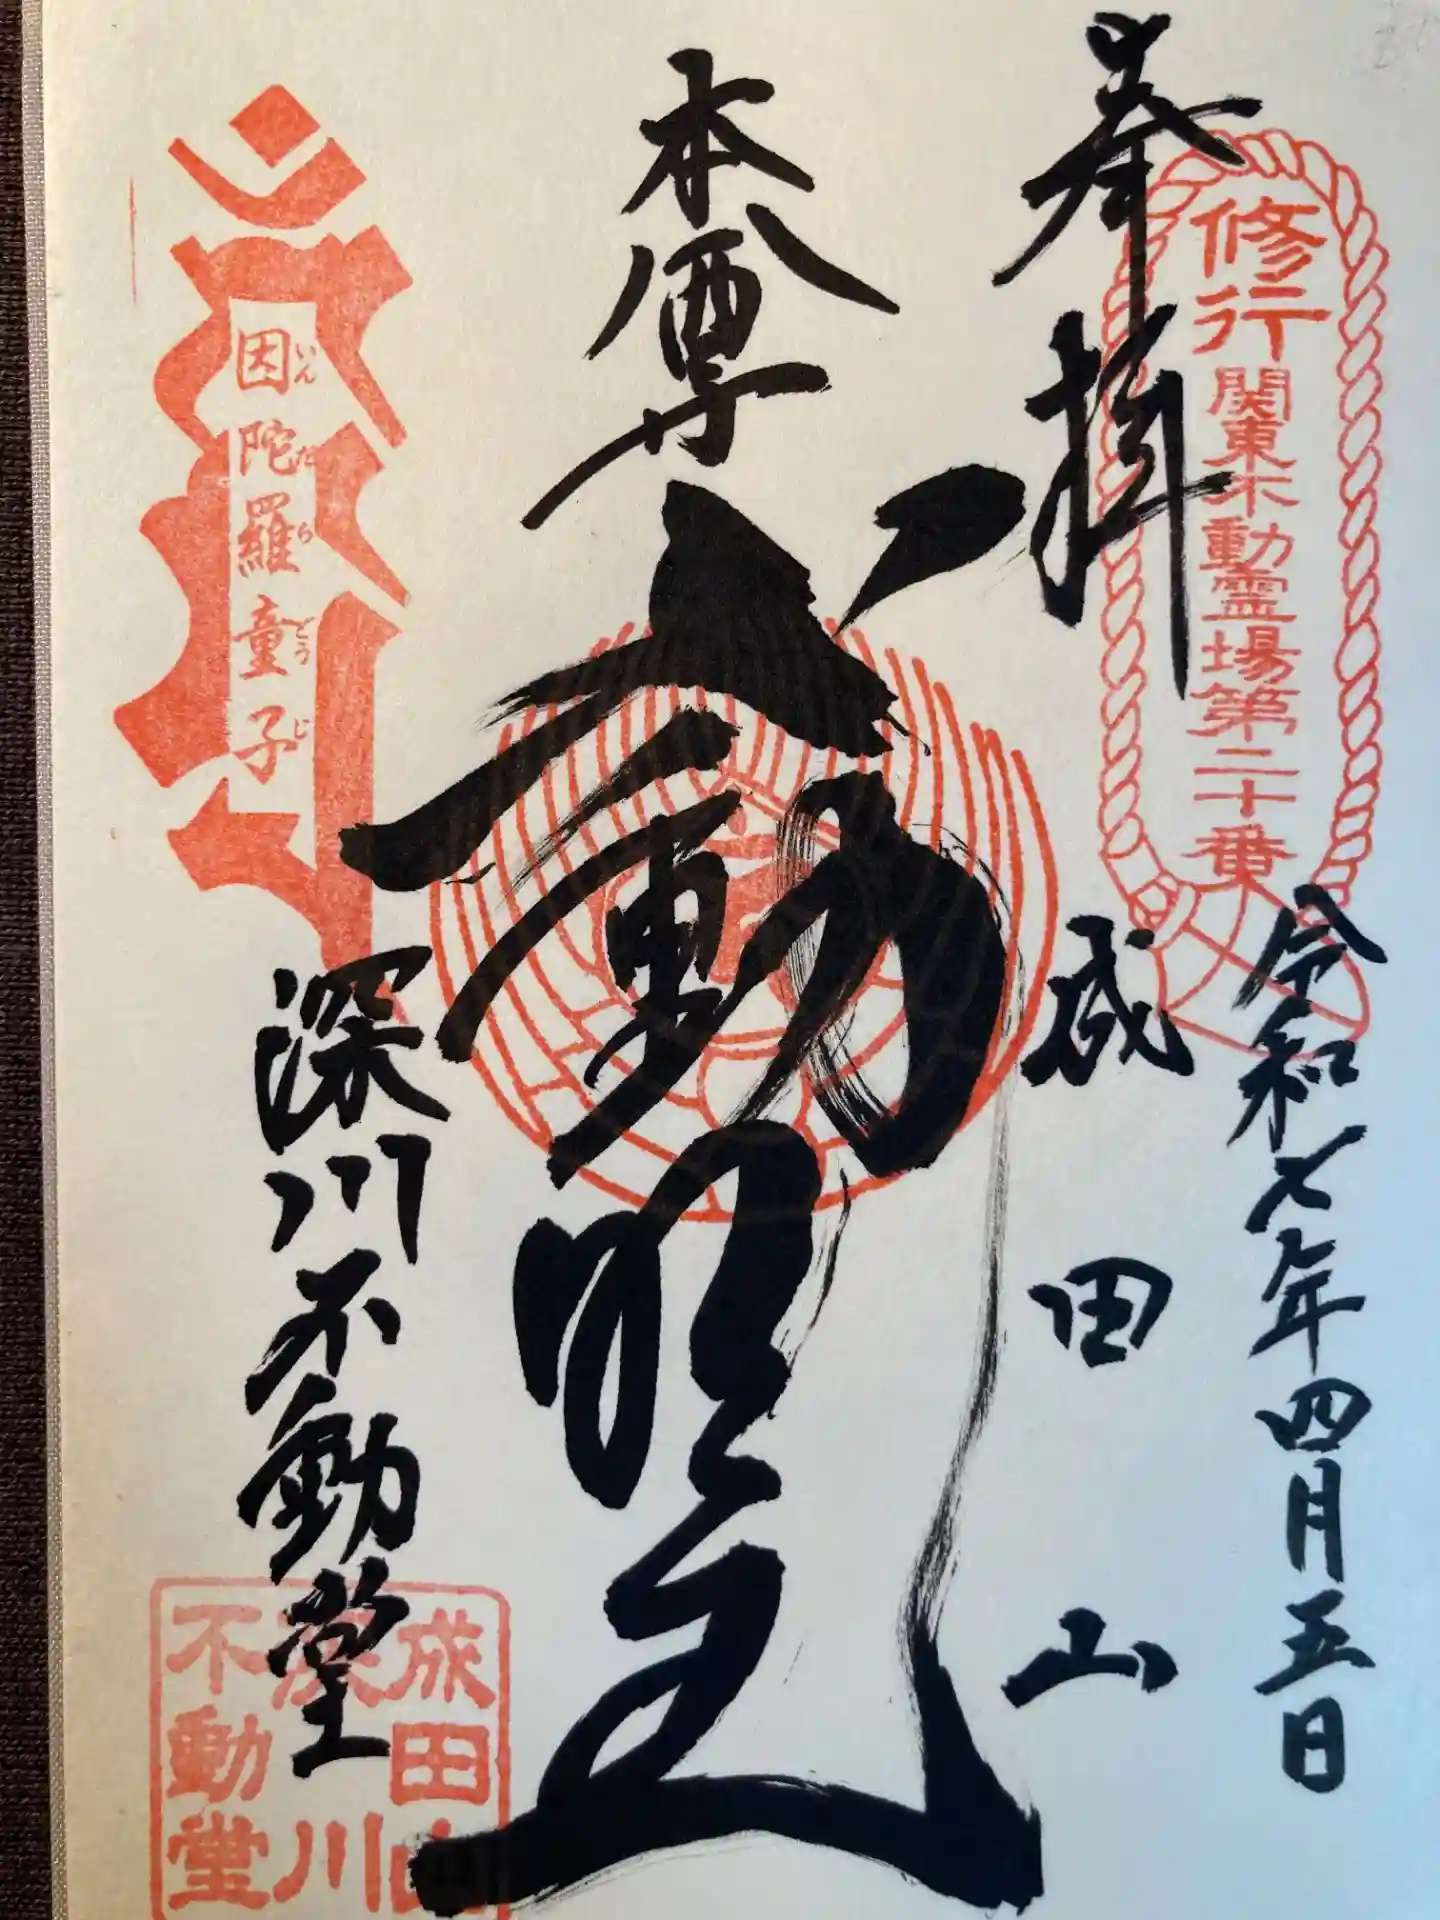 奉拝
修行
関東不動霊場第二十番
令和七年四月五日
成田山
本尊
不動明王
深川不動堂
因陀羅童子
いんだらどうじ
成田山
深川
不動堂